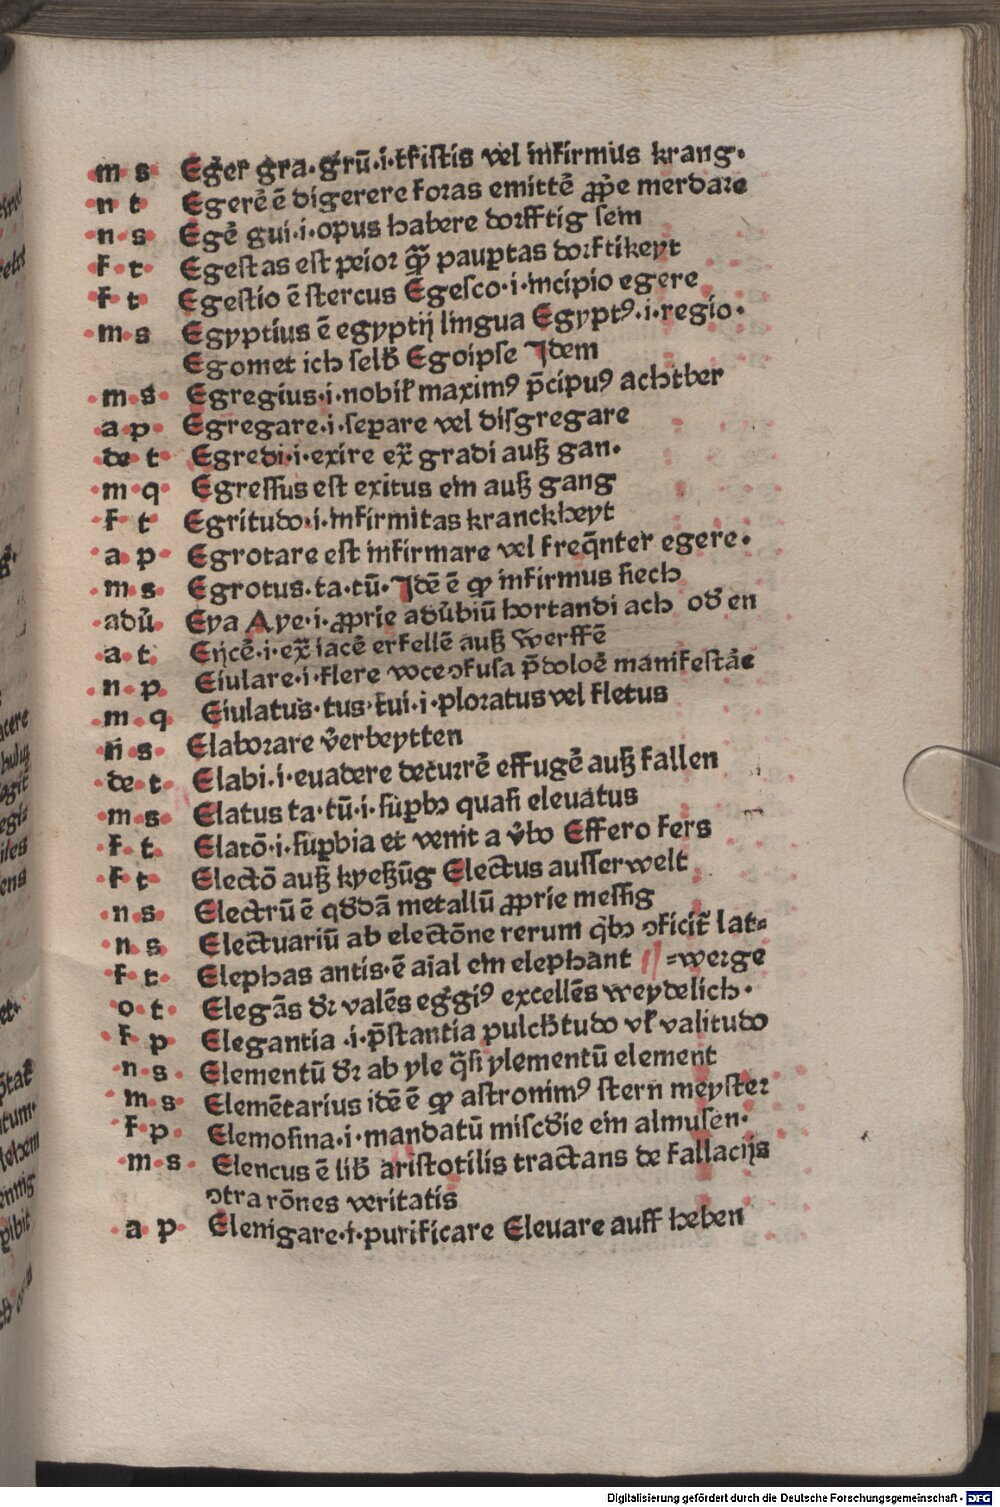 m s Eger gra·grū·i·tristis vel infirmus krang·
n t Egerē ē digerere foras emittē ꝓp̄e merdare
n s Egē gui·i·opus habere dorfftig sein
f t Egestas est peior qͣ̄ pauꝑtas dorftikeyt
f t Egestio ē stercus Egesco·i·incipio egere
m s Egyptius ē egyptij lingua Egyptꝰ·i·regio·
Egomet ich selb̄ Egoipse Idem
m s Egregius·i·nobiƚ maximꝰ p̄cipuꝰ achtber
a p Egregare·i·seꝑare vel disgregare
de t Egredi·i·exire ex̄ gradi auß gan·
m q Egressus est exitus ein auß gang
f t Egritudo·i·infirmitas kranckheyt
a p Egrotare est infirmare vel freq̄nter egere·
m s Egrotus·ta·tū·Idē ē ꝙ infirmus siech
adū Eya Aye·i·ꝓprie adūbiū hortandi ach od̄ en
a t Eijcē·i·ex̄ iacē erfellē auß werffē
n p Eiulare·i·flere voce ɔfusa p̄ doloē manifestāe
m q Eiulatus·tus·tui·i·ploratus vel fletus
n s Elaborare v̄erbeytten
de t Elabi·i·euadere decurrē effugē auß fallen
m s Elatus ta·tū·i·suꝑbꝫ quasi eleuatus
f t Elatō·i·suꝑbia et venit a v̄bo Effero fers
f t Electō auß kyeßūg Electus ausserwelt
n s Electrū ē qd̄dā metallū ꝓprie messig
n s Electuariū ab electōne rerum qͥbꝫ ɔficit̄ lat⸗
f t Elephas antis·ē aīal ein elephant ⸗werge
o t Elegās dr̄ valēs eḡgiꝰ excellēs weydelich·
f p Elegantia ·i·p̄stantia pulch̄tudo vƚ valitudo
n s Elementū dr̄ ab yle q̄si ylementū element
m s Elemētarius idē ē ꝙ astronimꝰ stern meyster
f p Elemosina·i·mandatū miscd̄ie ein almusen·
m s Elencus ē lib̄ aristotilis tractans de fallacijs
ɔtra rōnes veritatis
a p Elenigare·i·purificare Eleuare auff heben
Digitalisierung gefördert durch die Deutsche Forschungsgemeinschaft · DFG